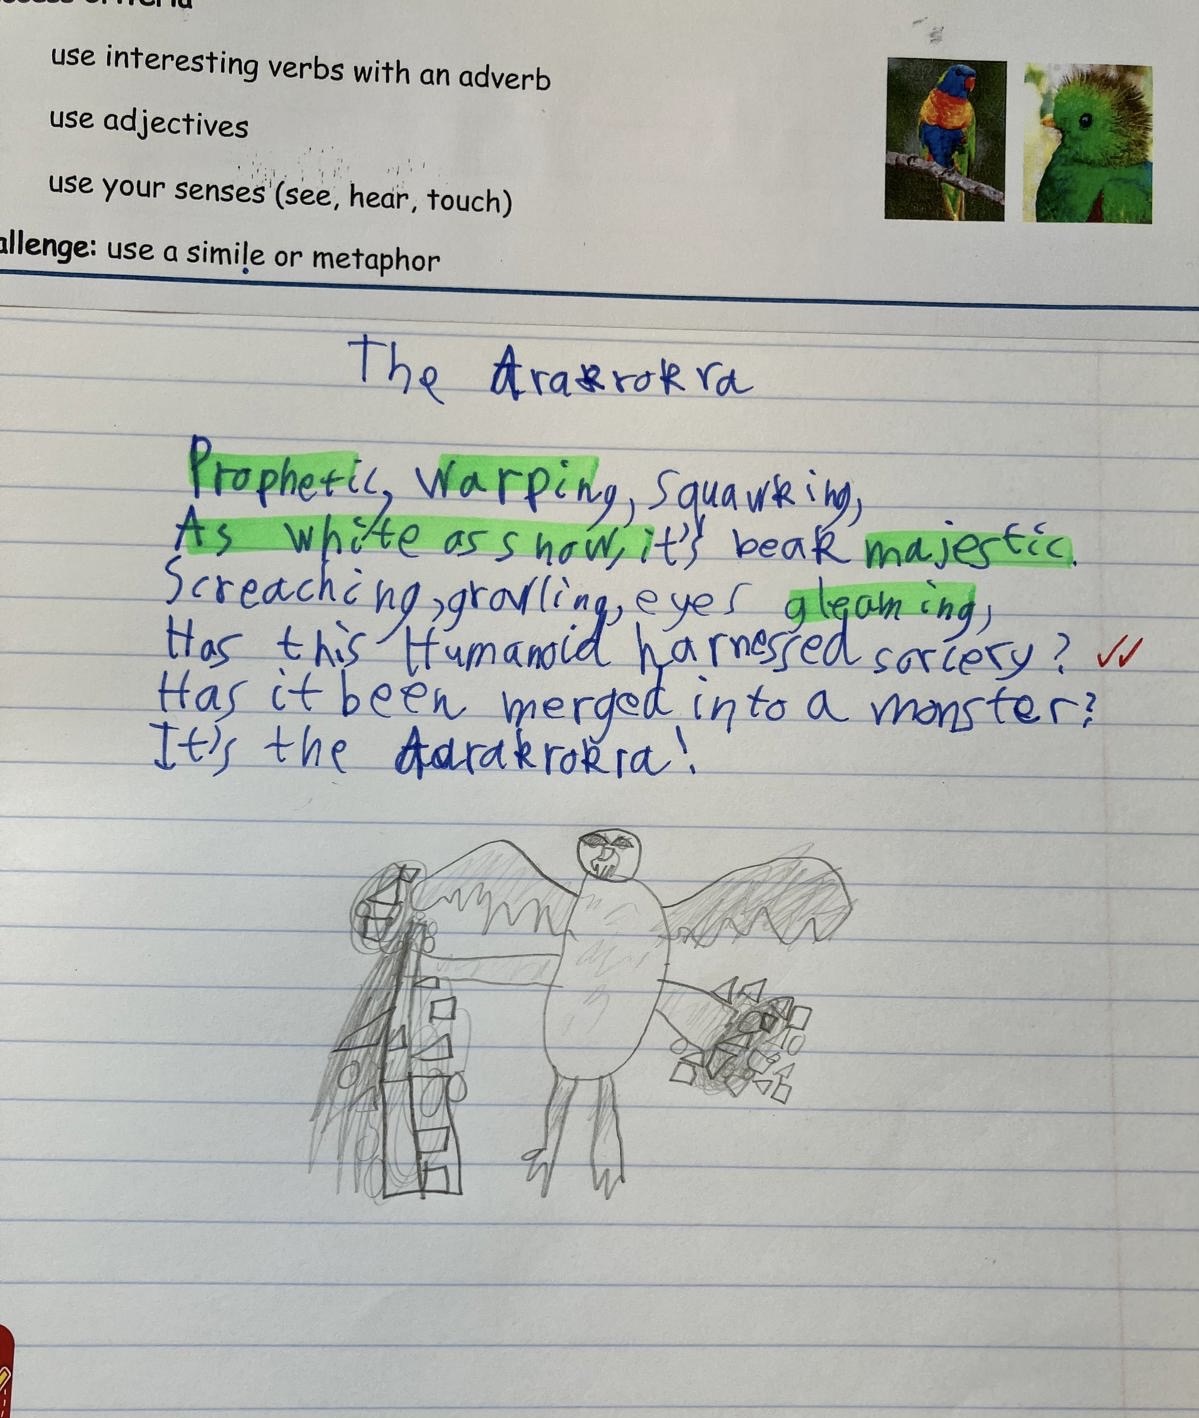 use interesting verbs with an adverb
use adjectives
use your senses (see, hear, touch)
allenge: use a simile or metaphor
The Arakrokra
Prophetic, warping, squawking,
As white as snow, it's beak majestic.
Screaching, growling, eyes gleaming,
Has this Humanoid harnessed sorcery?
Has it been merged into a monster?
It's the Aarakrokra!